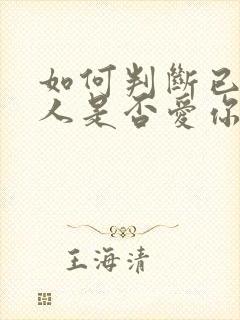 如何判斷已
人是否愛你
王海清